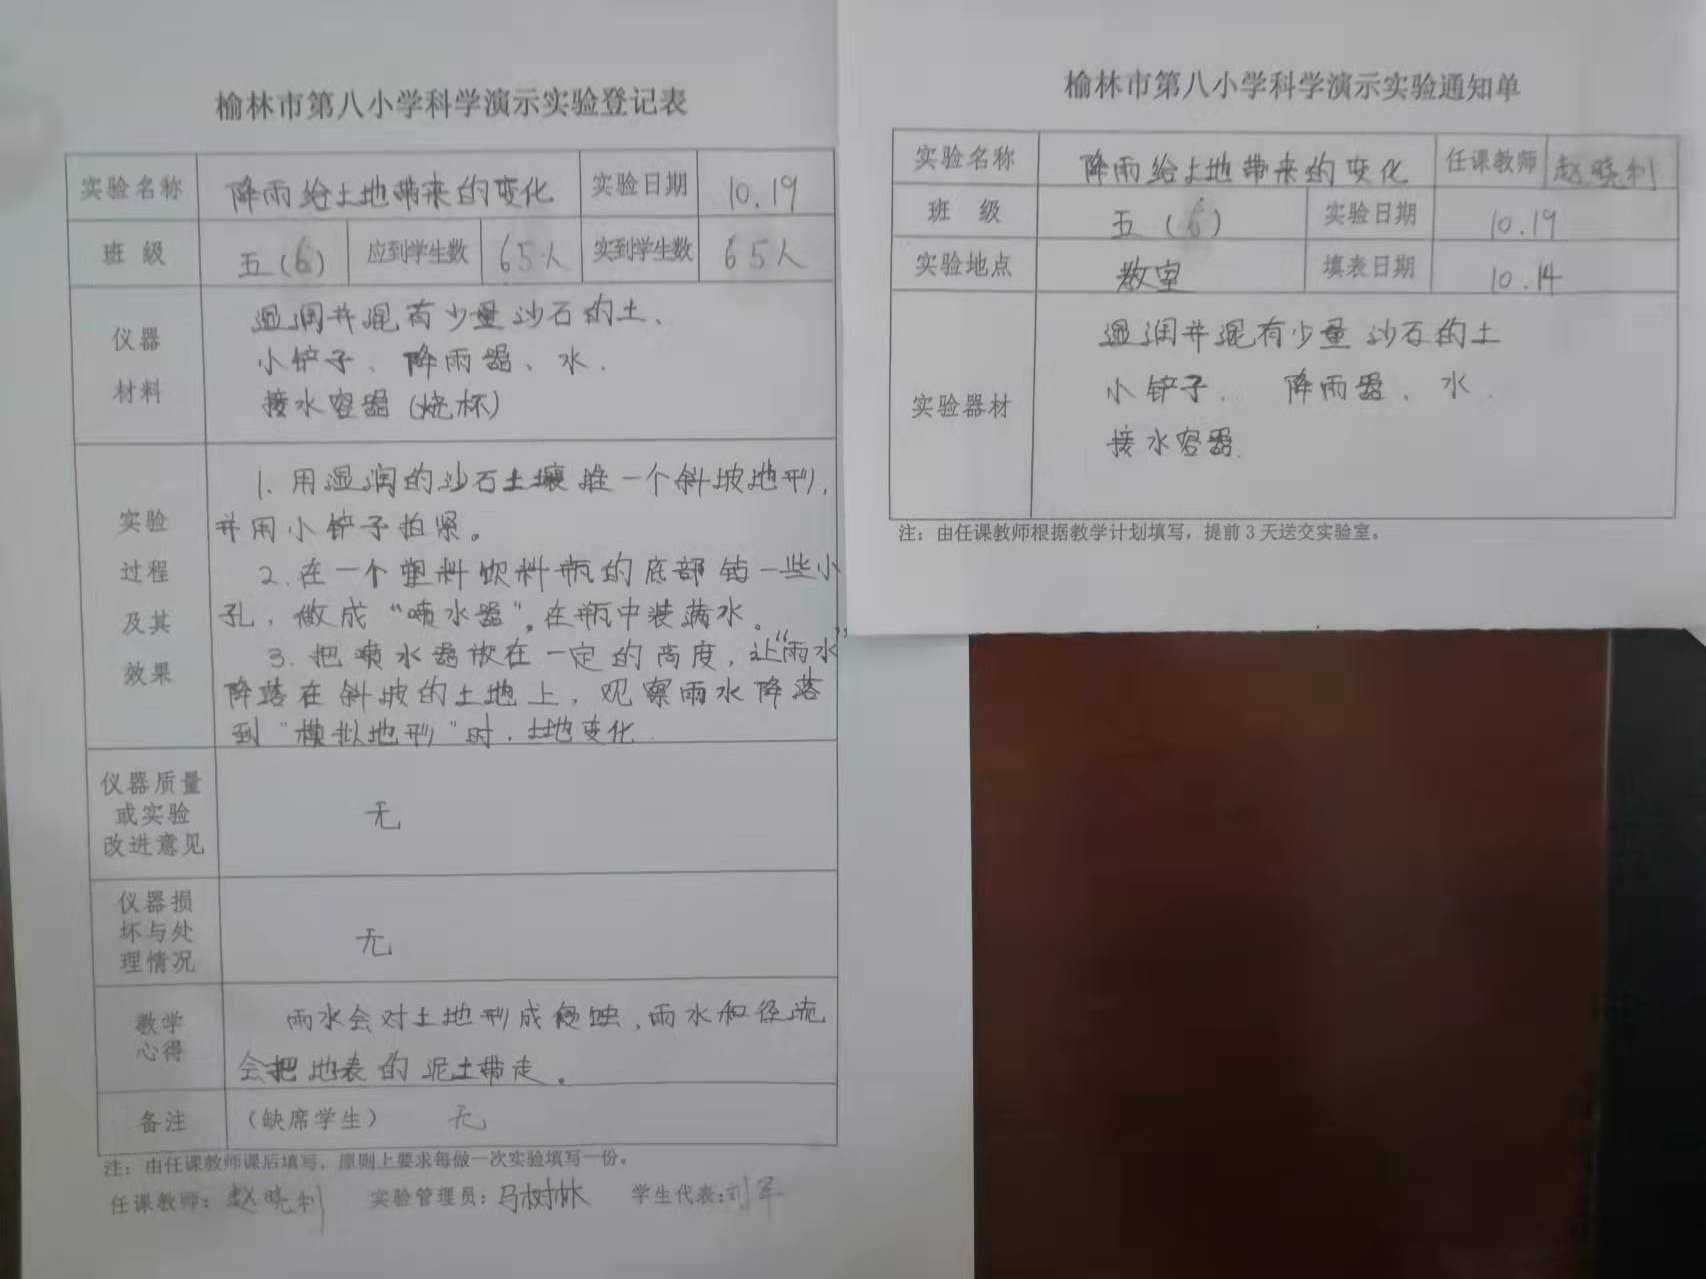 榆林市第八小学科学演示实验登记表
实验名称 降雨给土地带来的变化 实验日期 10.19
班 级 五(6) 应到学生数 65人 实到学生数 65人
仪器
材料
湿润并混有少量沙石的土、
小铲子、降雨器、水.
接水容器(烧杯)
实验
过程
及其
效果
1. 用湿润的沙石土壤堆一个斜坡地形,
并用小铲子拍紧。
2. 在一个塑料饮料瓶的底部钻一些小
孔,做成“喷水器”。在瓶中装满水。
3. 把喷水器放在一定的高度,让“雨水”
降落在斜坡的土地上,观察雨水降落
到“模拟地形”时,土地变化.
仪器质量
或实验
改进意见
无
仪器损
坏与处
理情况
无
教学
心得
雨水会对土地形成侵蚀,雨水和径流
会把地表的泥土带走。
备注 (缺席学生) 无
注:由任课教师课后填写,原则上要求每做一次实验填写一份。
任课教师:赵晓利 实验管理员:马树林 学生代表:刘军
榆林市第八小学科学演示实验通知单
实验名称 降雨给土地带来的变化 任课教师 赵晓利
班 级 五(6) 实验日期 10.19
实验地点 教室 填表日期 10.14
实验器材
湿润并混有少量沙石的土
小铲子. 降雨器、水.
接水容器.
注:由任课教师根据教学计划填写,提前3天送交实验室。